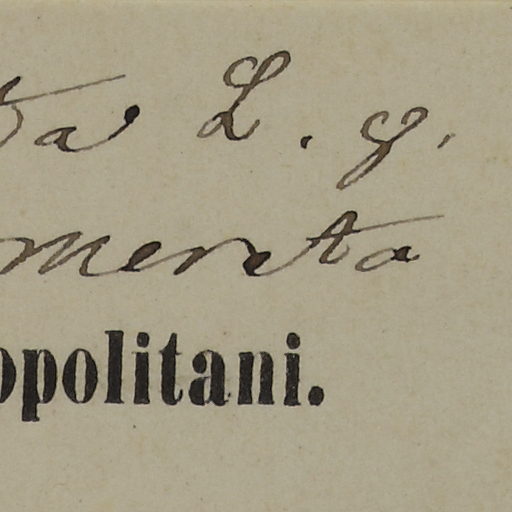 ta L. g.
merata
opolitani.